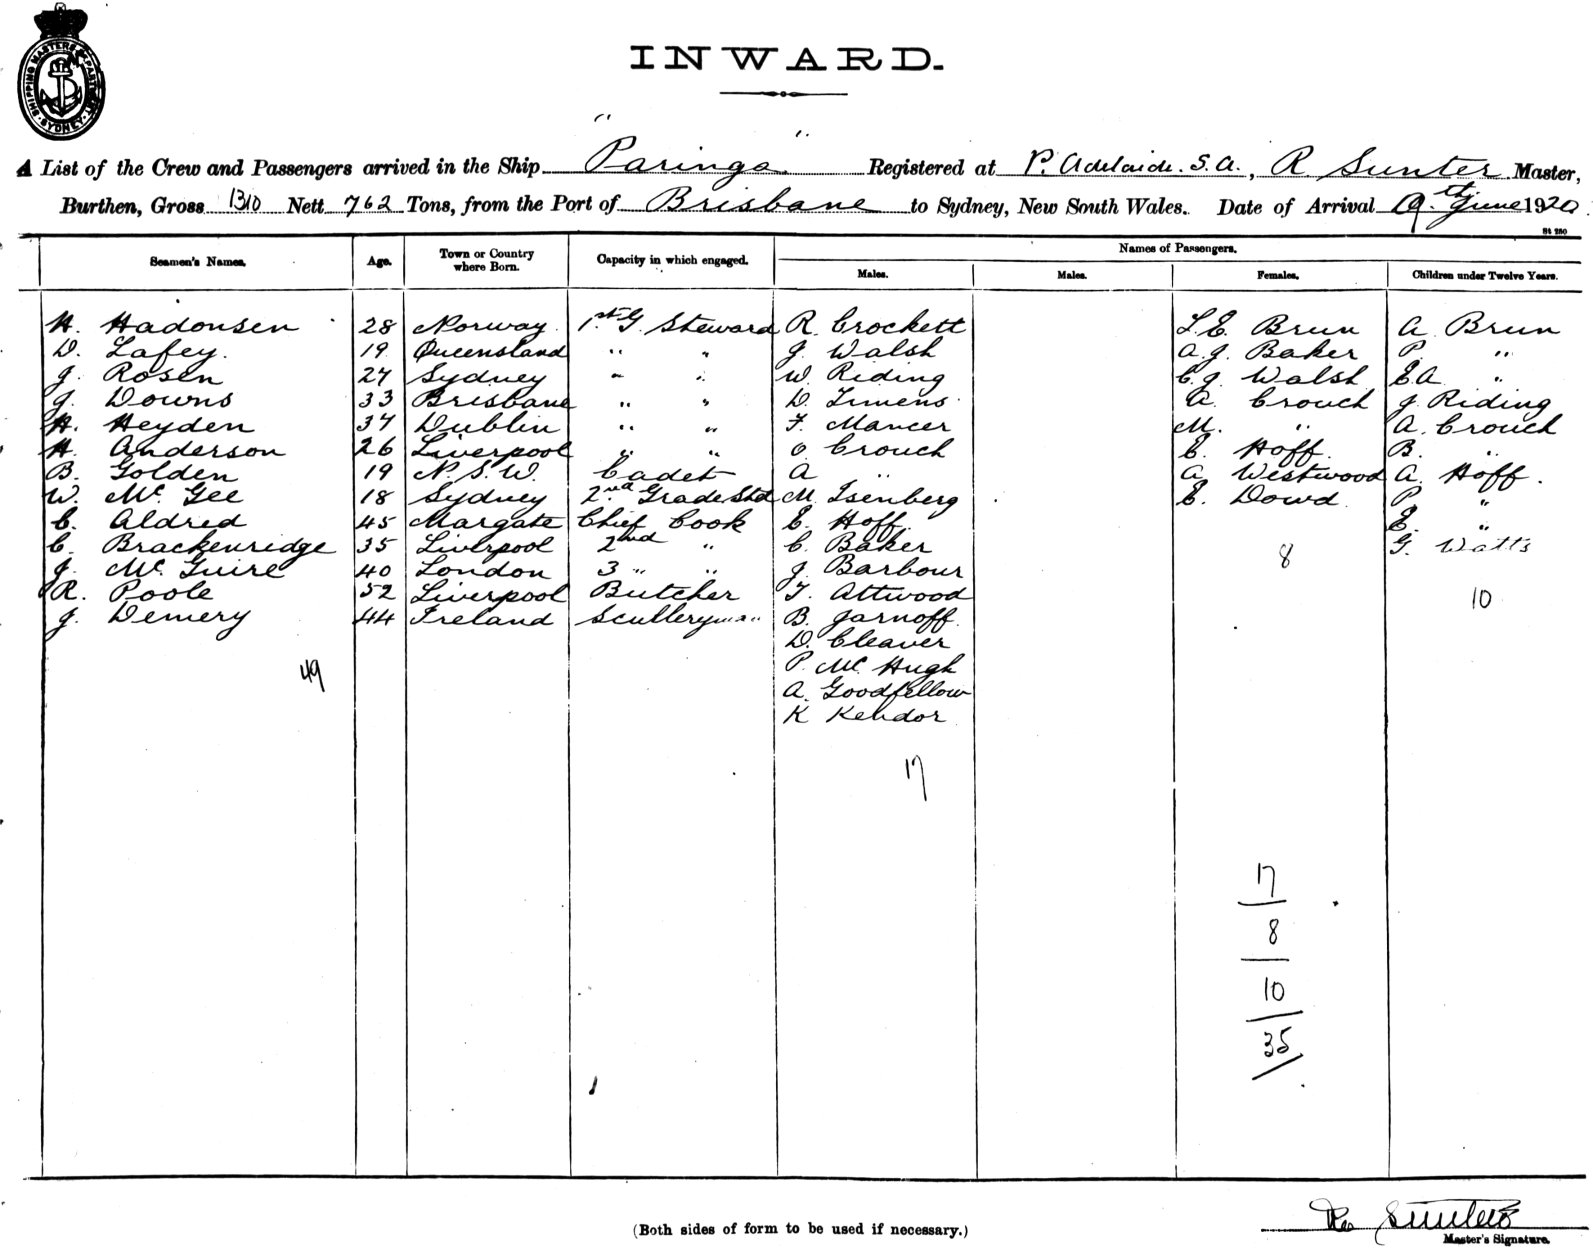 SHIPPING MASTERS DEPARTMENT SYDNEY
INWARD.
A List of the Crew and Passengers arrived in the Ship "Paringa" Registered at P. Adelaide. S.A., R Sunter Master,
Burthen, Gross 1310 Nett 762 Tons, from the Port of Brisbane to Sydney, New South Wales. Date of Arrival 19th June 1920
St 280
Seamen's Names. Age. Town or Country where Born. Capacity in which engaged. Names of Passengers.
Males. Males. Females. Children under Twelve Years.
H. Hadonsen 28 Norway 1st G. Steward R. Crockett L.E. Brun A Brun
D. Lafey. 19 Queensland " " J. Walsh A.J. Baker P. "
J. Rosen 27 Sydney " " W. Riding C.J. Walsh E.A "
J. Downs 33 Brisbane " " D. Timens A. Crouch J Riding
H. Heyden 37 Dublin " " F. Mancer M. " A. Crouch
H. Anderson 26 Liverpool " " O Crouch E. Hoff B. "
B. Golden 19 N.S.W. Cadet A " A Westwood A. Hoff.
W. Mc Gee 18 Sydney 2nd Grade Std M. Isenberg E. Dowd P "
C. Aldred 45 Margate Chief Cook E. Hoff. E. "
C. Brackenridge 35 Liverpool 2nd " C. Baker 8 G. Watts
J. Mc Guire 40 London 3 " " J. Barbour
R. Poole 52 Liverpool Butcher T. Attwood 10
J. Demery 44 Ireland Sculleryman B. Jarnoff.
D. Cleaver
49 P. Mc Hugh
A. Goodfellow
K Kendor
17
17
8
10
35
(Both sides of form to be used if necessary.)
Sunter
Master's Signature.